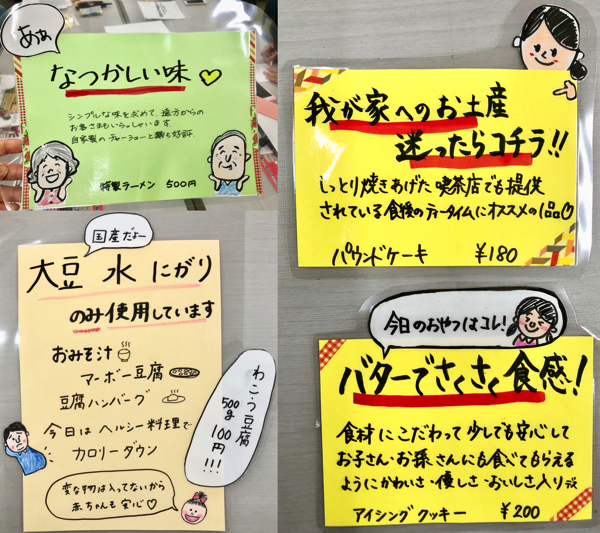 あぁ
なつかしい味
シンプルな味を求めて、遠方からの
お客さまもいらっしゃいます
自家製のチャーシューと麺も好評
特製ラーメン 500円
我が家へのお土産
迷ったらコチラ!!
しっとり焼きあげた喫茶店でも提供
されている食後のティータイムにオススメの1品♡
パウンドケーキ ¥180
国産だよー
大豆 水 にがり
のみ使用しています
おみそ汁
マーボー豆腐
豆腐ハンバーグ
今日はヘルシー料理で
カロリーダウン
わこう豆腐
500g
100円!!!
変な物は入ってないから
赤ちゃんも安心♡
今日のおやつはコレ!
バターでさくさく食感!
食材にこだわって少しでも安心して
お子さん・お孫さんにも食べてもらえる
ようにかわいさ・優しさ・おいしさ入り
アイシングクッキー ¥200